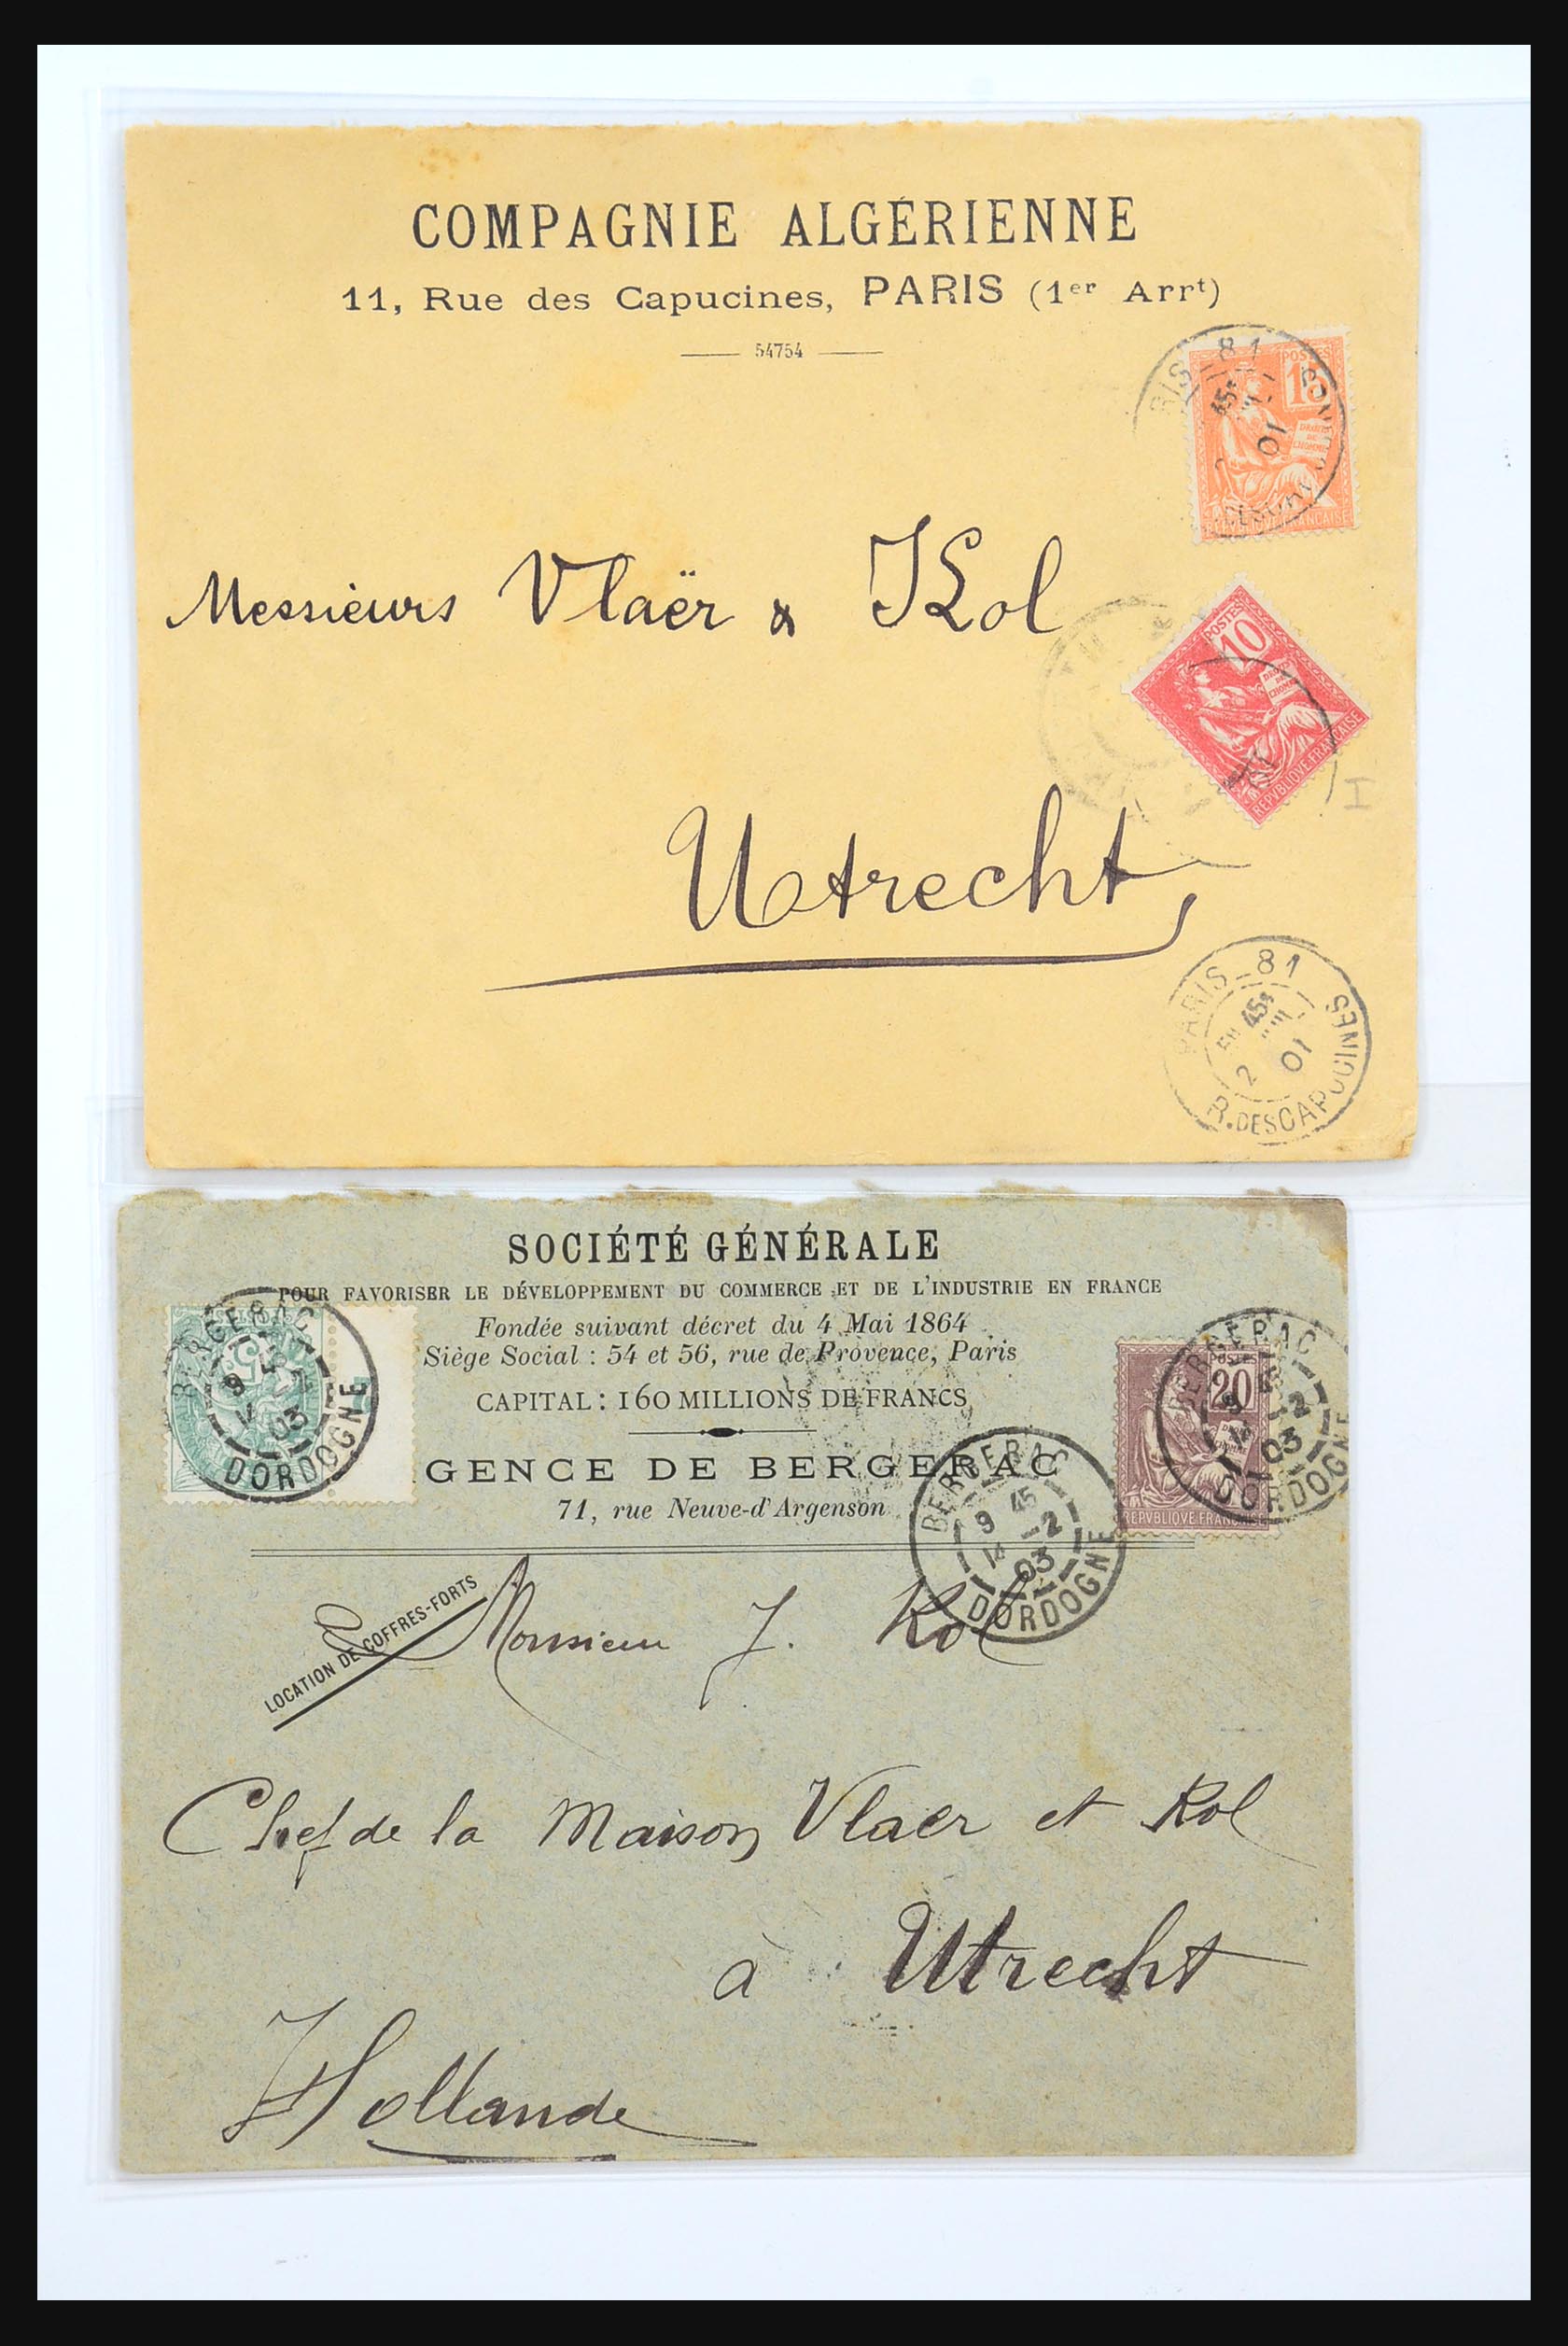 COMPAGNIE ALGÉRIENNE
11, Rue des Capucines, PARIS (1er Arrt)
54754
PARIS_81
45
01
POSTES
15
DROITS DE L'HOMME
REPVBLIQVE FRANÇAISE
Messieurs Vlaër & Kol
POSTES
10
DROITS DE L'HOMME
REPVBLIQVE FRANÇAISE
I
Utrecht
PARIS_81
45
2
01
R. DES CAPUCINES
SOCIÉTÉ GÉNÉRALE
POUR FAVORISER LE DÉVELOPPEMENT DU COMMERCE ET DE L'INDUSTRIE EN FRANCE
Fondée suivant décret du 4 Mai 1864
Siège Social : 54 et 56, rue de Provence, Paris
CAPITAL : 160 MILLIONS DE FRANCS
GENCE DE BERGERAC
71, rue Neuve-d'Argenson
BERGERAC
9 45
03
DORDOGNE
POSTES
20
REPVBLIQVE FRANÇAISE
BERGERAC
9
14 -2
03
DORDOGNE
BERGERAC
9 45
14 -2
03
DORDOGNE
LOCATION DE COFFRES-FORTS
Monsieur J. Kol
Chef de la Maison Vlaer et Kol
à Utrecht
Hollande